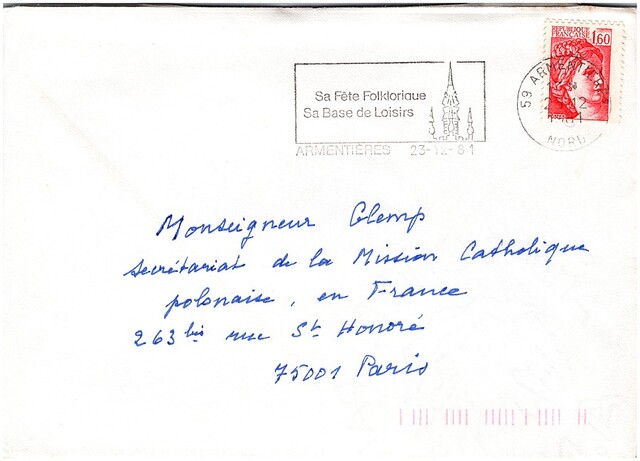 RÉPUBLIQUE
FRANÇAISE
1,60
59 ARMENTIÈRES
NORD
Sa Fête Folklorique
Sa Base de Loisirs
ARMENTIÈRES 23-12-81
Monseigneur Glemp
secrétariat de la Mission Catholique
polonaise, en France
263 bis rue St Honoré
75001 Paris